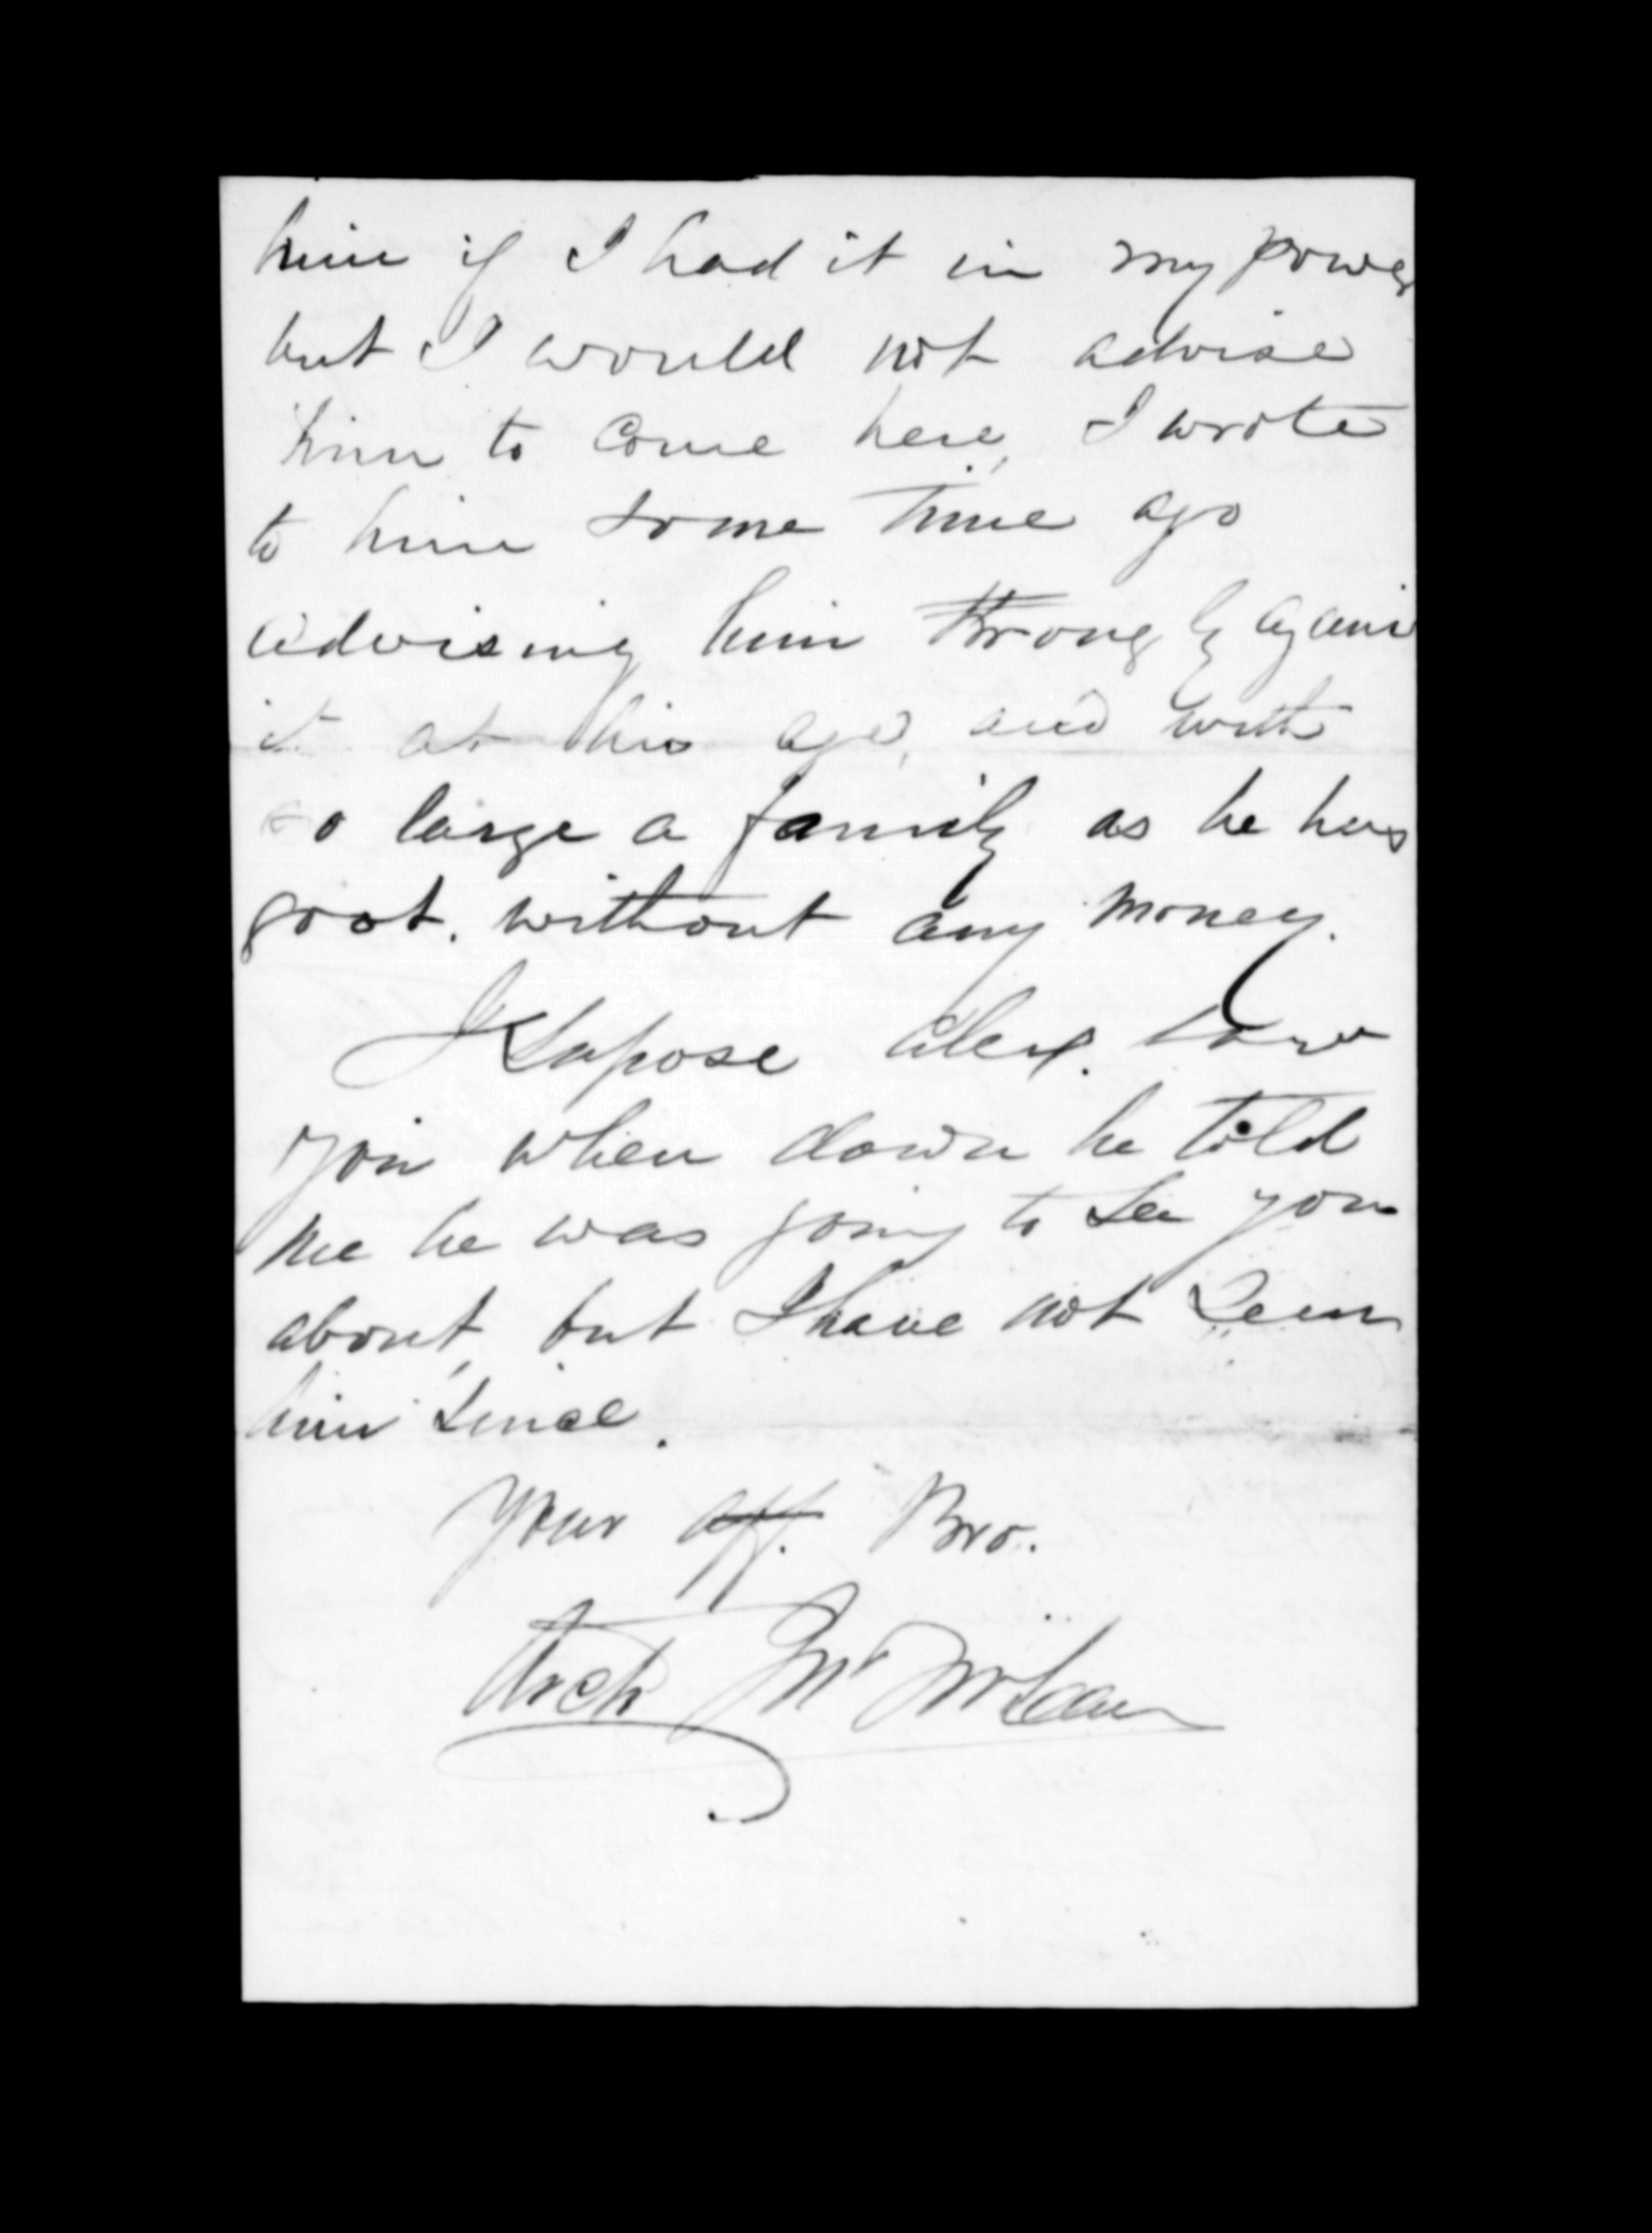 him if I had it in my power
but I would not advise
him to come here, I wrote
to him some time ago
advising him strongly again
it at his age, and with
so large a family as he has
goot. without any money.
I Supose Alex. saw
you when down he told
me he was going to see you
about, but I have not seen
him since.
Your aff. Bro.
Arch Jn McLean